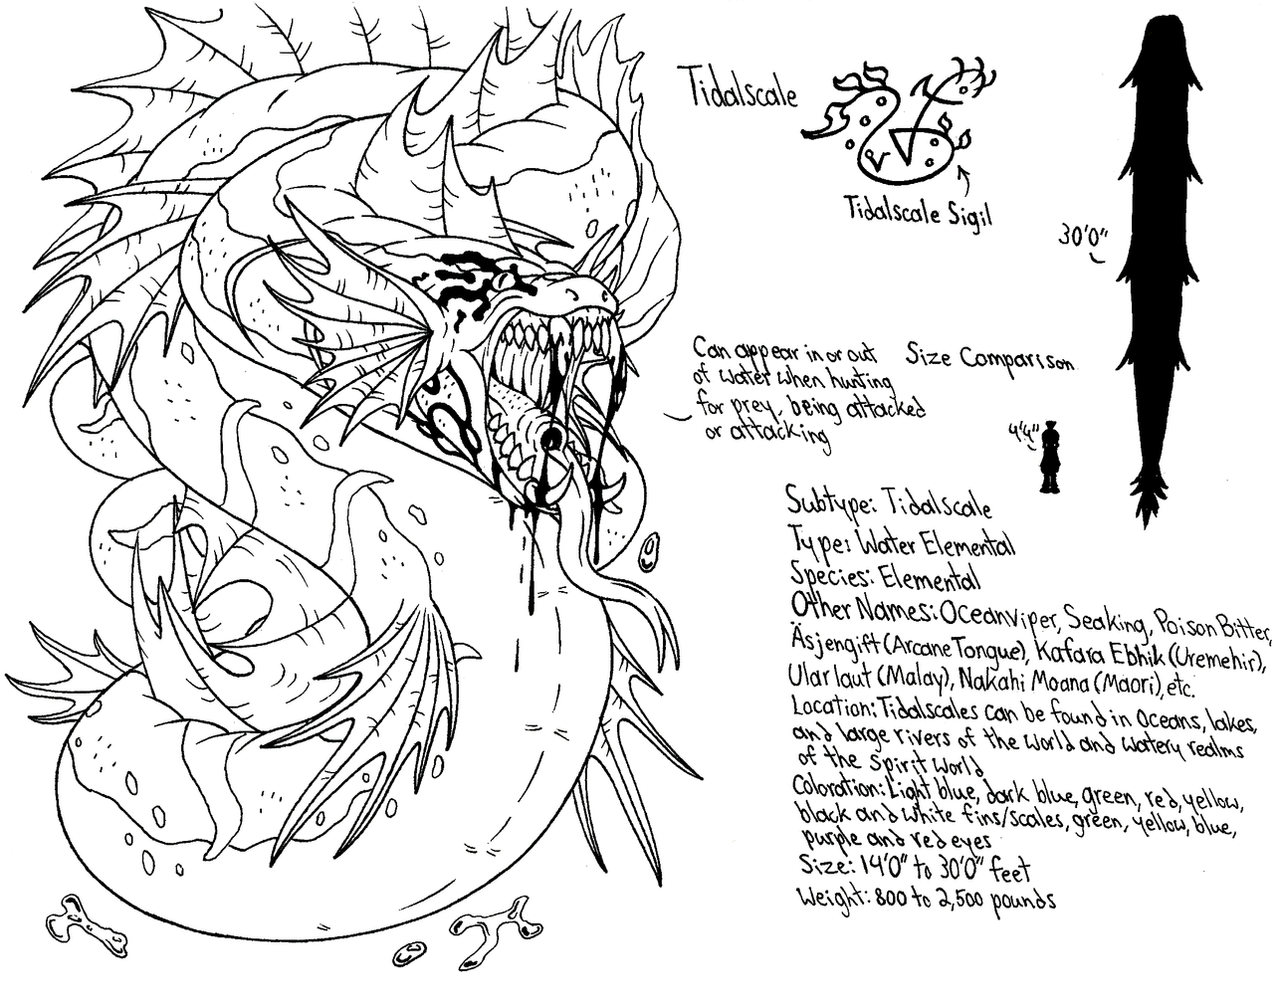 Tidalscale
Tidalscale Sigil
30'0"
Can appear in or out
of water when hunting
for prey, being attacked
or attacking
Size Comparison
4'4"
Subtype: Tidalscale
Type: Water Elemental
Species: Elemental
Other Names: Oceanviper, Seaking, Poison Bitter,
Äsjengift (Arcane Tongue), Kafara Ebhik (Uremehir),
Ular laut (Malay), Nakahi Moana (Maori), etc.
Location: Tidalscales can be found in oceans, lakes,
and large rivers of the world and watery realms
of the Spirit World
Coloration: Light blue, dark blue, green, red, yellow,
black and white fins/scales, green, yellow, blue,
purple and red eyes
Size: 14'0" to 30'0" feet
Weight: 800 to 2,500 pounds